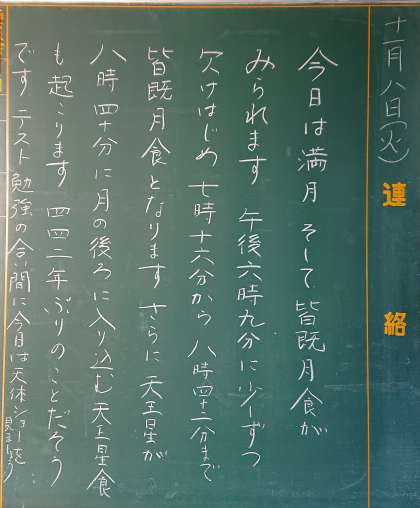 十一月八日(火)
連絡
今日は満月 そして 皆既月食が
みられます 午後六時九分に少しずつ
欠けはじめ 七時十六分から 八時四十二分まで
皆既月食となります さらに 天王星が
八時四十分に月の後ろに入り込む天王星食
も起こります 四四二年ぶりのことだそう
です テスト勉強の合間に今日は天体ショーを
見ましょう